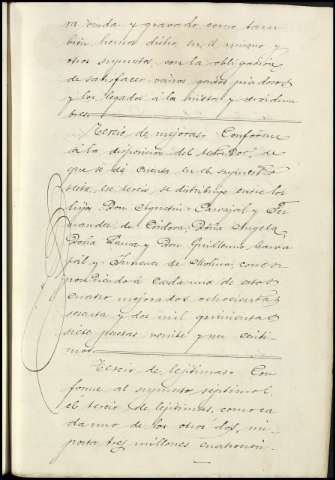 ra renda y gravado, como tam-
bien hemos dicho, en el nuevo y
otros supuestos, con la obligacion
de satisfacer varios gastos piadosos
y los legados á la
Tercio de mejoras. Conforme
á la disposicion del testador, de
que se dá cuenta en el supuesto
sexto, el tercio se distribuye entre los
hijos Don Agustin Carvajal y Fer-
nandez de Cordova, Doña Angela
Doña Laura y Don Guillermo Carva-
jal y Jimenez de Molina, corres-
pondiendo á cada uno de estos
cuatro mejorados ochocientas
sesenta y dos mil quinientas
siete pesetas veinte y un centi-
mos
Tercio de legitimas. Con-
forme al supuesto septimo,
el tercio de legitimas, como ca-
da uno de los otros dos, im-
porta tres millones cuatrocien-